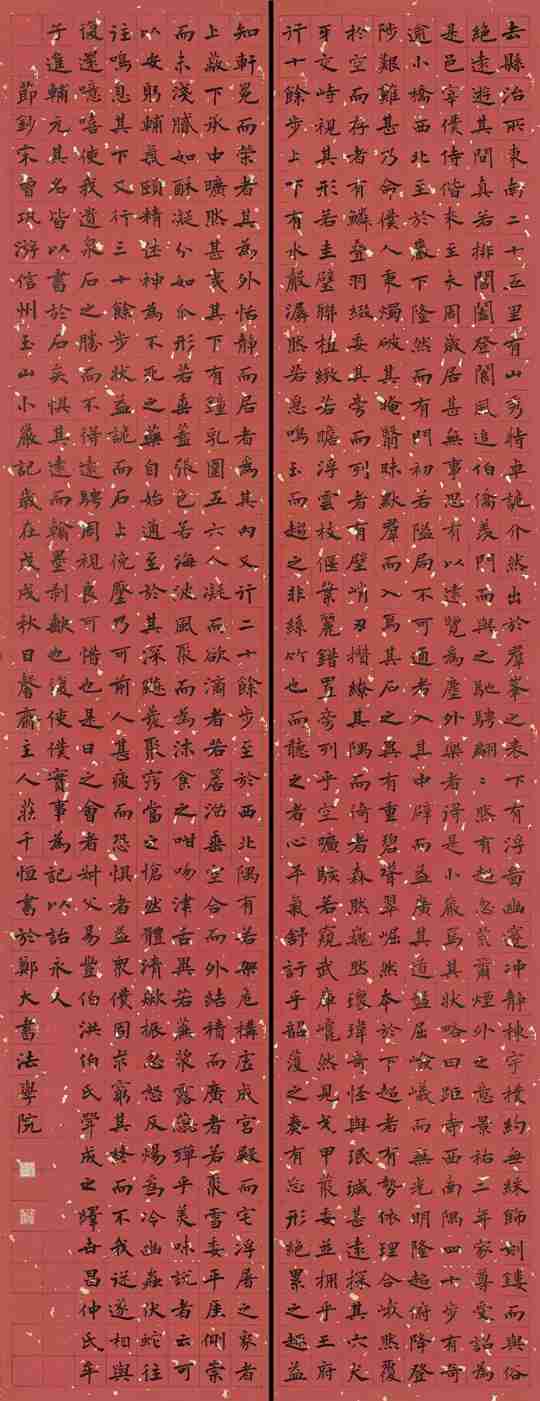 去縣治所東南二十五里有山秀特卓詭介然出於羣峯之表下有浮啚幽邃沖靜棟宇樸約無綵飾刻鏤而與俗
絕遠遊其間真若排閶闔登閬風追伯僑羨門而與之馳騁翩〻然有超忽荒霱煙外之意景祐二年家尊受詔為
是邑宰僕侍偕來至永周歲居甚無事恐有以遠覽為塵外樂者得是小巖焉其狀略曰距寺西南隅四十步有奇
逾小橋西北至於巖下隆然而有門初若隘局不可通者入其中辟而益廣其道盤屈嶮巇而無光明隆超俯降登
陟艱難甚乃命僕人秉燭破其晻翳昧默羣而入焉其石之異有重碧聳翠崛然本於下超者有勢依理合峨然覆
於空而存者有鱗疊羽綴委其旁而列者有壁峭刃攢繚其隅而倚者森然巍然瓌瑋奇怪與珉珹甚遠探其穴犬
牙交峙視其形若圭璧聯植緻若瞻浮雲枝偃葉麗錯置旁列乎空曠駭若窺武庫巄然見戈甲叢委並拥乎王府
行十餘步上下有水嚴潺然若忽鳴玉而超之非絲竹也而聽之者心平氣舒訏乎韶濩之奏有忘形絕累之趣益
知軒冕而榮者其為外怡靜而居者為其內又行二十餘步至於西北隅有若架危構虛成宮殿而宅浮屠之象者
上敞下氷中曠然甚夷其下有鍾乳圍五六人凝而欲滴者若冶垂空合而外結積而廣者若聚雪委平崖側崇
而未淺膩如酥凝分如爪形若真蓋張色若海波風聚而為沫食之咁吻津舌異若蕪漿露蕊殫乎美味說者云可
以安躬輔氣頤精性神為不死之藥自始通至於其深賾叢聚窍當之愴然體清歘振忽怒反煬為冷幽蟲伏蛇往
往鳴息其下又行三十餘步狀益詭而石上俛壓乃可前人甚疲而恐惧者益衆僕固求窮其終而不我從遂相與
復還噫嘻使我道泉石之勝而不得遠騁周視良可惜也是日之會者舛父易豐伯洪伯氏鞏成之嶧古昌仲氏车
于進輔元其名皆以書於石矣惧其遠而翰墨剥也復使僕實事為記以詒永人
節鈔宋曾巩游信州玉山小巖記歲在戊戌秋日馨齋主人莊千恒書於鄭大書法學院